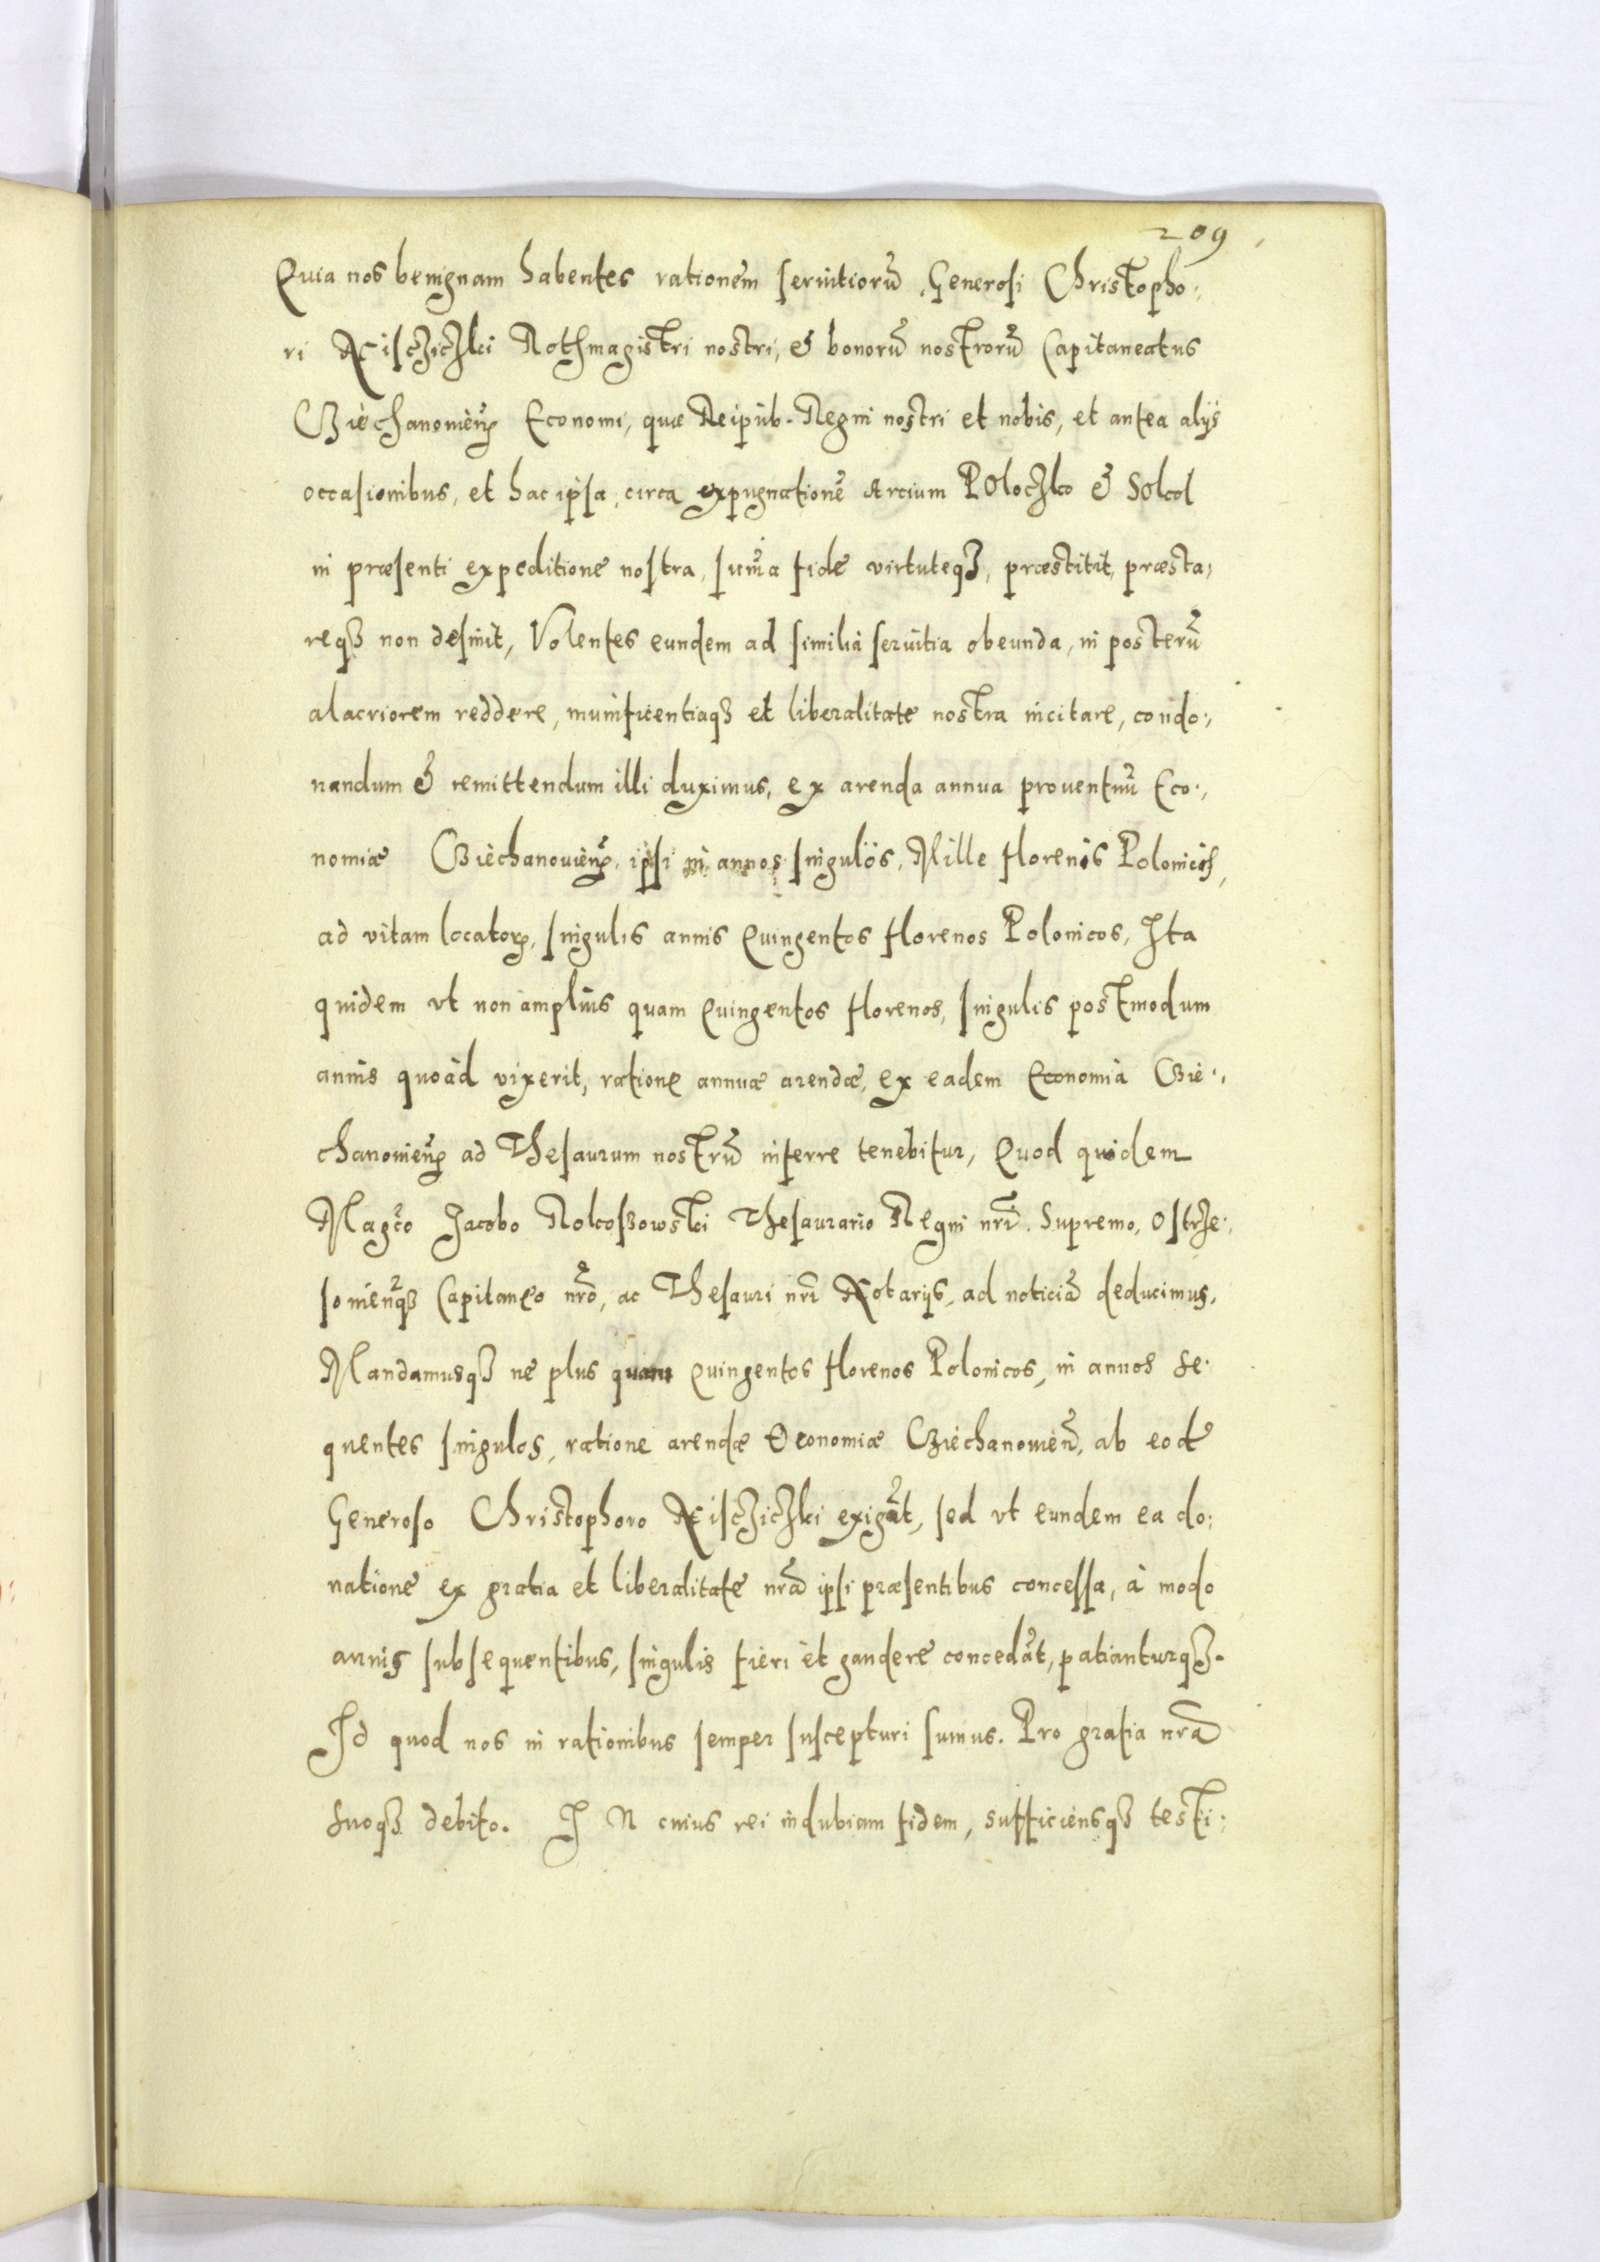 209
Quia nos benignam habentes rationem seruitiorũ Generosi Christopho:
ri Niscziczki Rothmagistri nostri, & bonorũ nostrorũ Capitaneatus
Cziechanouieñ Economi, quæ Reipub. Regni nostri et nobis, et antea alijs
occasionibus, et hac ipsa, circa expugnationẽ Arcium POloczko & SOkol
in præsenti expeditione nostra, sum̃a fide virtuteqꝫ, præstitit, præsta:
reqꝫ non desinit, Volentes eundem ad similia seruitia obeunda, in posterũ
alacriorem reddere, munificentiaqꝫ et liberalitate nostra incitare, condo:
nandum & remittendum illi duximus, ex arenda annua prouentuũ Eco:
nomiæ Cziechanouieñ, ipsi in annos singulos, Mille florenis Polonicis,
ad vitam locatorꝫ, singulis annis Quingentos florenos Polonicos, Ita
quidem vt non amplius quam Quingentos florenos, singulis postmodum
annis quoad vixerit, ratione annuæ arendæ, ex eadem Economia Czie:
chanouieñ ad Thesaurum nostrũ inferre tenebitur, Quod quidem
Magco Jacobo Rokossowski Thesaurario Regni nr̃i. Supremo, Ostrze:
souieñqꝫ Capitaneo nr̃o, ac Thesauri nr̃i Notarijs, ad noticiã deducimus,
Mandamusqꝫ ne plus quam Quingentos florenos Polonicos, in annos se:
quentes singulos, ratione arendæ Oeconomiæ Cziechanouieñ, ab eodẽ
Generoso Christophoro Niscziczki exigãt, sed vt eundem ea do:
natione ex gratia et liberalitate nr̃a ipsi præsentibus concessa, à modo
annis subsequentibus, singulis fieri et gaudere concedãt, patianturqꝫ.
Id quod nos in rationibus semper suscepturi sumus. Pro gratia nr̃a
suoqꝫ debito. I N cuius rei indubiam fidem, sufficiensqꝫ testi: